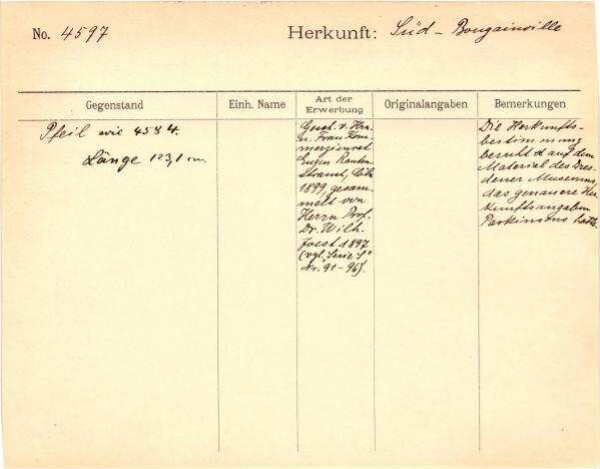 No. 4597 Herkunft: Süd - Bougainville
Gegenstand Einh. Name Art der Erwerbung Originalangaben Bemerkungen
Pfeil wie 4584.
Länge 123,1 cm.
Gesch. v. Herrn
u. Frau Kom-
merzienrat
Eugen Rauten-
Strauch, Cöln
1899, gesam-
melt von
Herrn Prof.
Dr. Wilh.
Joest 1897
(vgl. Serie
Nr. 91-96).
Die Herkunfts-
bestimmung
beruht auf dem
Material des Dres-
dener Museums,
das genauere Her-
kunftsangaben
Parkinsons hatte.